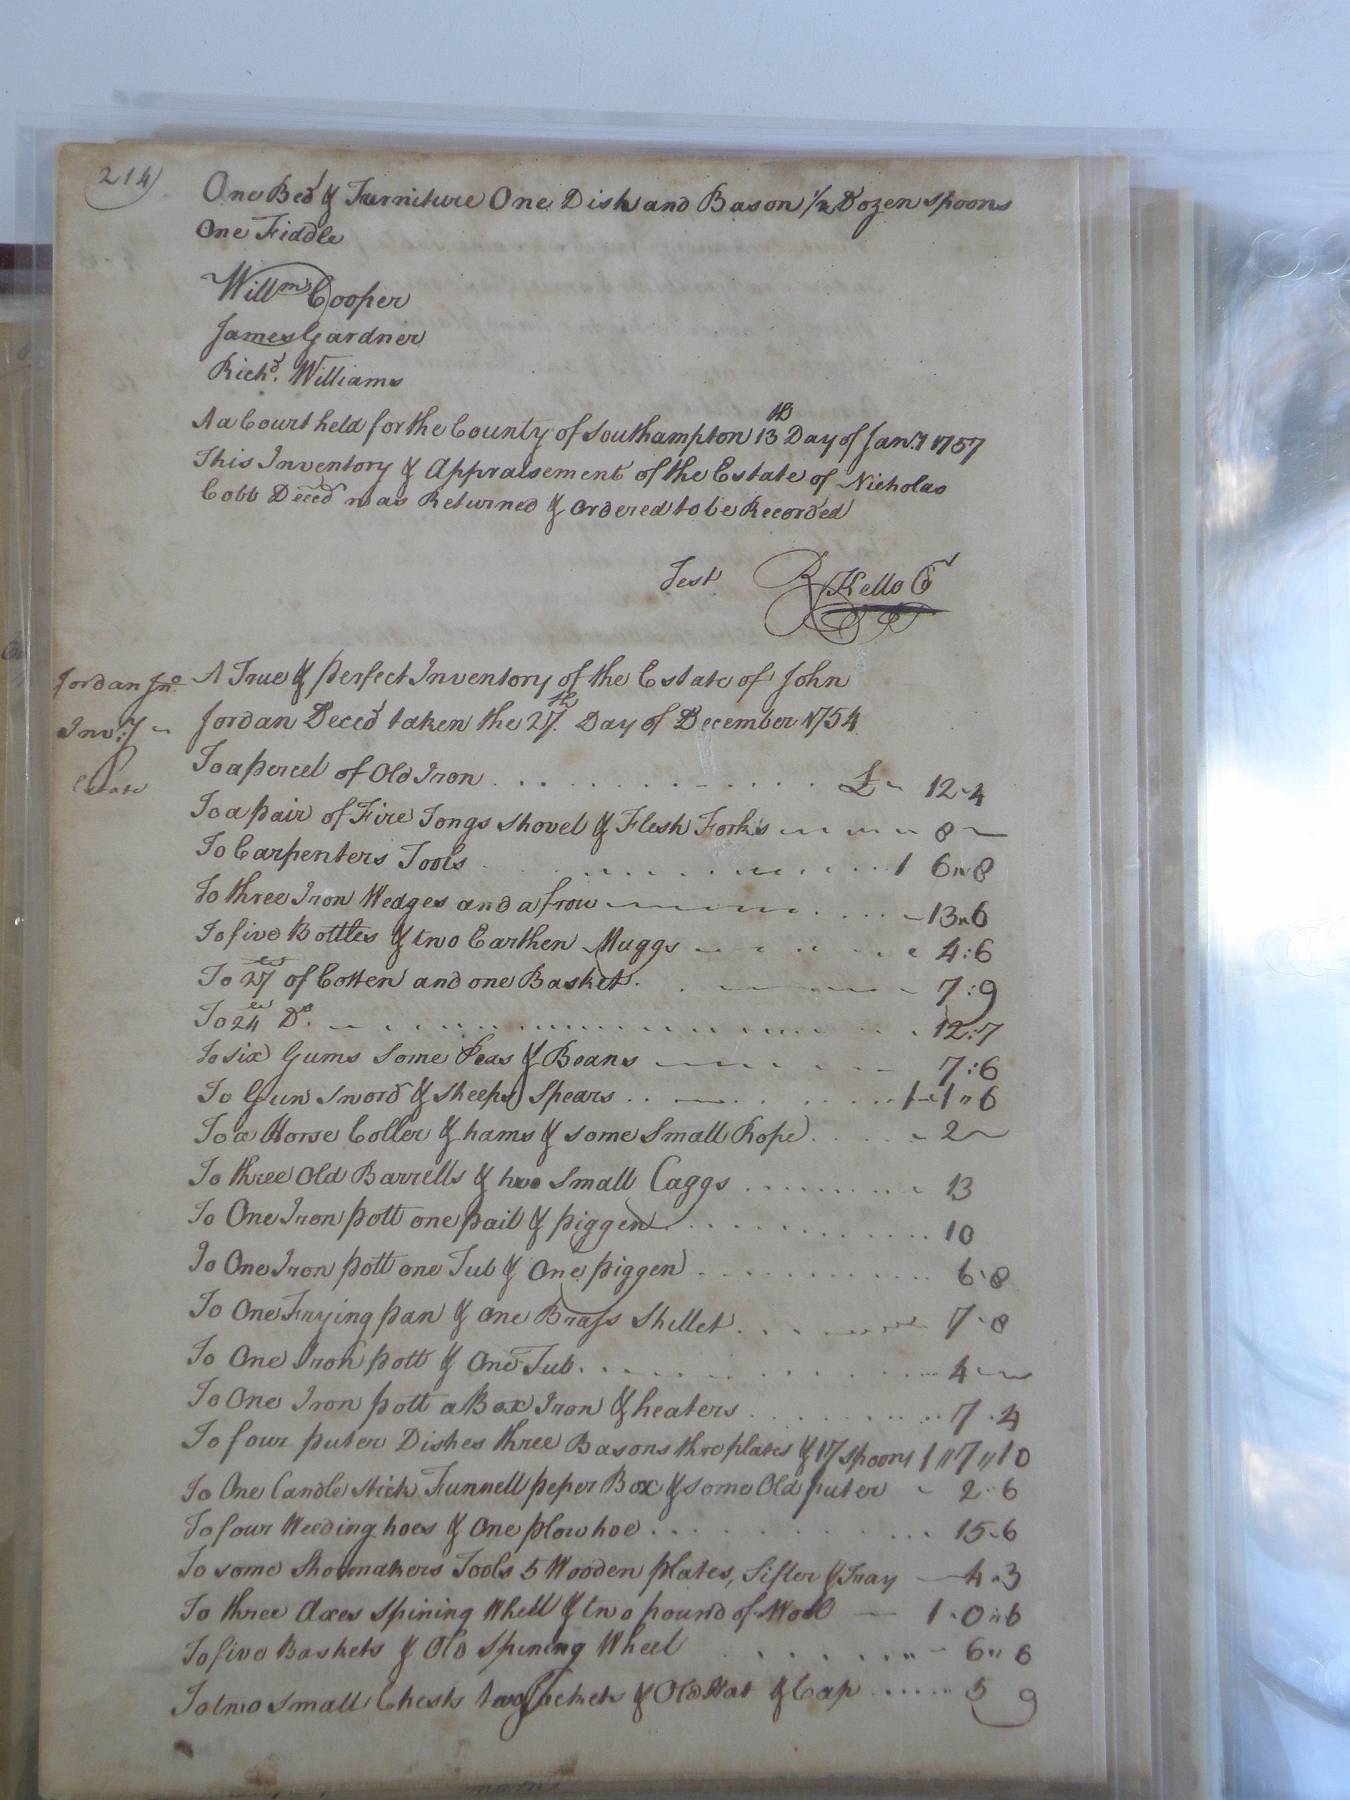 214)
One Bed & Furniture One Dish and Bason 1/2 Dozen spoons
One Fiddle
Willm Cooper
James Gardner
Richd. Williams
At a Court held for the County of Southampton 13th Day of Jany 1757
This Inventory & Appraisement of the Estate of Nicholas
Cobb Deced was Returned & ordered to be Recorded
Test R Kello Cl
Jordan Jno. A True & perfect Inventory of the Estate of John
Inv:y Jordan Deced taken the 27th. Day of December 1754
Estate
To a percel of Old Iron £ 12-4
To a pair of Fire Tongs shovel & Flesh Forks 8
To Carpenters Tools 1 6 8
To three Iron Wedges and a frow 13 6
To five Bottles & two Earthen Muggs 4:6
To 27 of Cotten and one Basket 7:9
To 24 Do. 12:7
To six Gums some Peas & Beans 7:6
To Gun sword & sheeps Spears 1 1 6
To a Horse Coller & hams & some small Rope 2
To three Old Barrells & two small Caggs 13
To One Iron pott one pail & piggen 10
To One Iron pott one Tub & One piggen 6 8
To One Frying pan & one Brass Skillet 7 8
To One Iron pott & One Tub 4
To One Iron pott a Box Iron & heaters 7 4
To four puter Dishes three Basons thre plates & 17 spoons 1 7 10
To One Candle stick Funnell peper Box & some Old puter 2 6
To four Weeding hoes & One plow hoe 15 6
To some Shoemakers Tools 5 Wooden plates, Sifter & Tray 4 3
To three Axes spining Wheel & two pound of Wool 1 0 6
To five Baskets & Old Spining Wheel 6 6
To two small Chests two Jackets & Old Hat & Cap 5 9